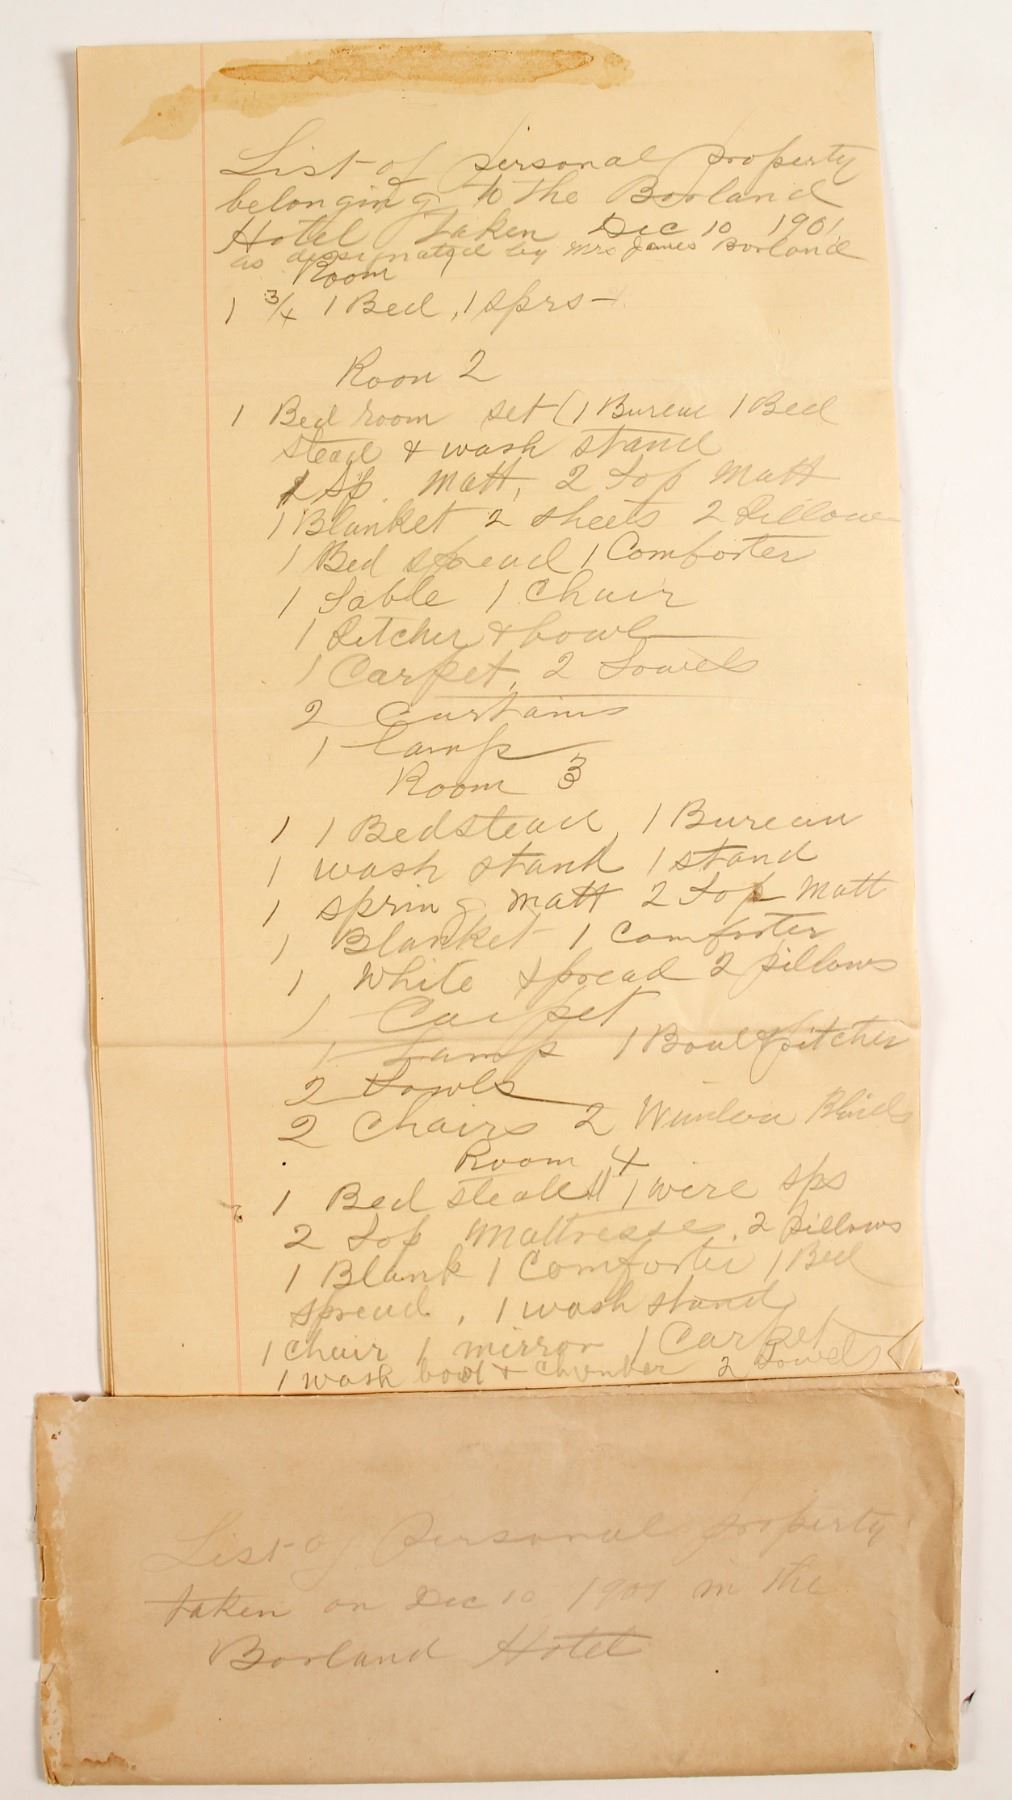 List of personal property
belonging to the Borland
Hotel Taken Dec 10 1901
as designated by Mrs James Borland
Room
1 3/4 1 Bed, 1 sprs
Roon 2
1 Bed room set (1 Bureau 1 Bed
stead & wash stand
1 Sp. Matt, 2 Top Matt
1 Blanket 2 sheets 2 Pillows
1 Bed spread 1 Comforter
1 Table 1 Chair
1 Pitcher & bowl
1 Carpet, 2 Towels
2 Curtains
1 Lamp
Room 3
1 1 Bedstead, 1 Bureau
1 wash stand 1 stand
1 spring matt 2 Top Matt
1 Blanket 1 Comforter
1 White spread 2 pillows
1 Carpet
1 Lamp 1 Bowl & pitcher
2 Towls
2 Chairs 2 Window Blinds
Room 4
1 Bed stead 1 wire sps
2 Top Mattresses, 2 Pillows
1 Blank 1 Comforter 1 Bed
spread, 1 wash stand
1 Chair 1 mirror 1 Carpet
1 wash bowl & Chamber 2 Towels
List of Personal property
taken on Dec 10 1901 in the
Borland Hotel